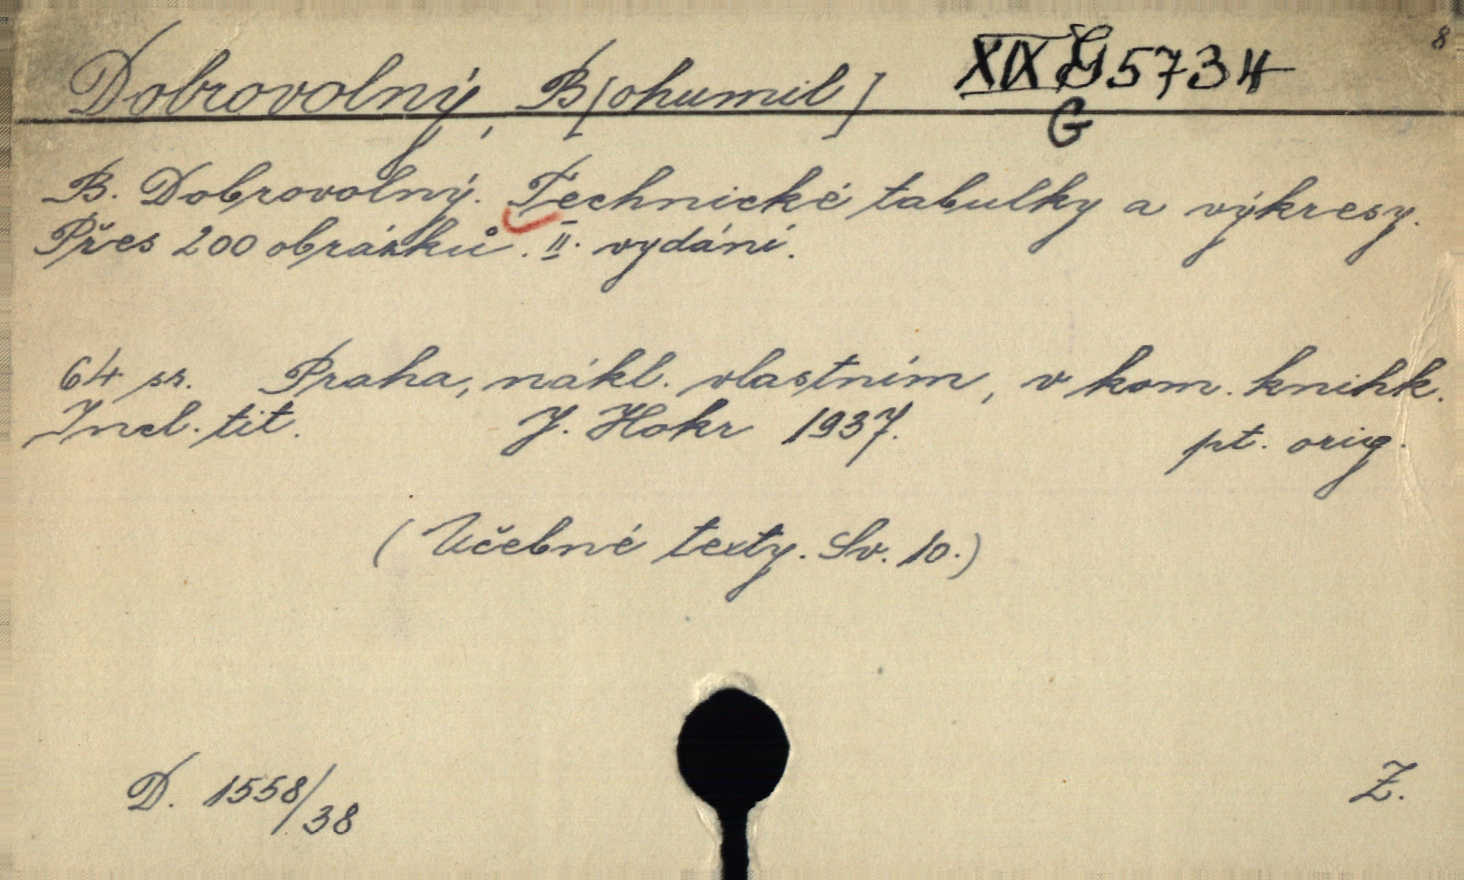 8
Dobrovolný, B[ohumil] XIX G 5734
G
B. Dobrovolný. Technické tabulky a výkresy.
Přes 200 obrázků. II. vydání.
64 sr. Praha, nákl. vlastním, v kom. knihk.
Incl. tit. J. Hokr 1937. pt. orig.
(Učebné texty. Sv. 10.)
D. 1558/38 Z.